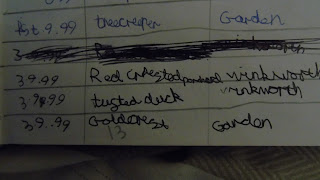 9.99 treecreeper Garden
39.99 Red crested pochard winkworth
39.99 tufted duck winkworth
39.99 Goldcrest Garden
13